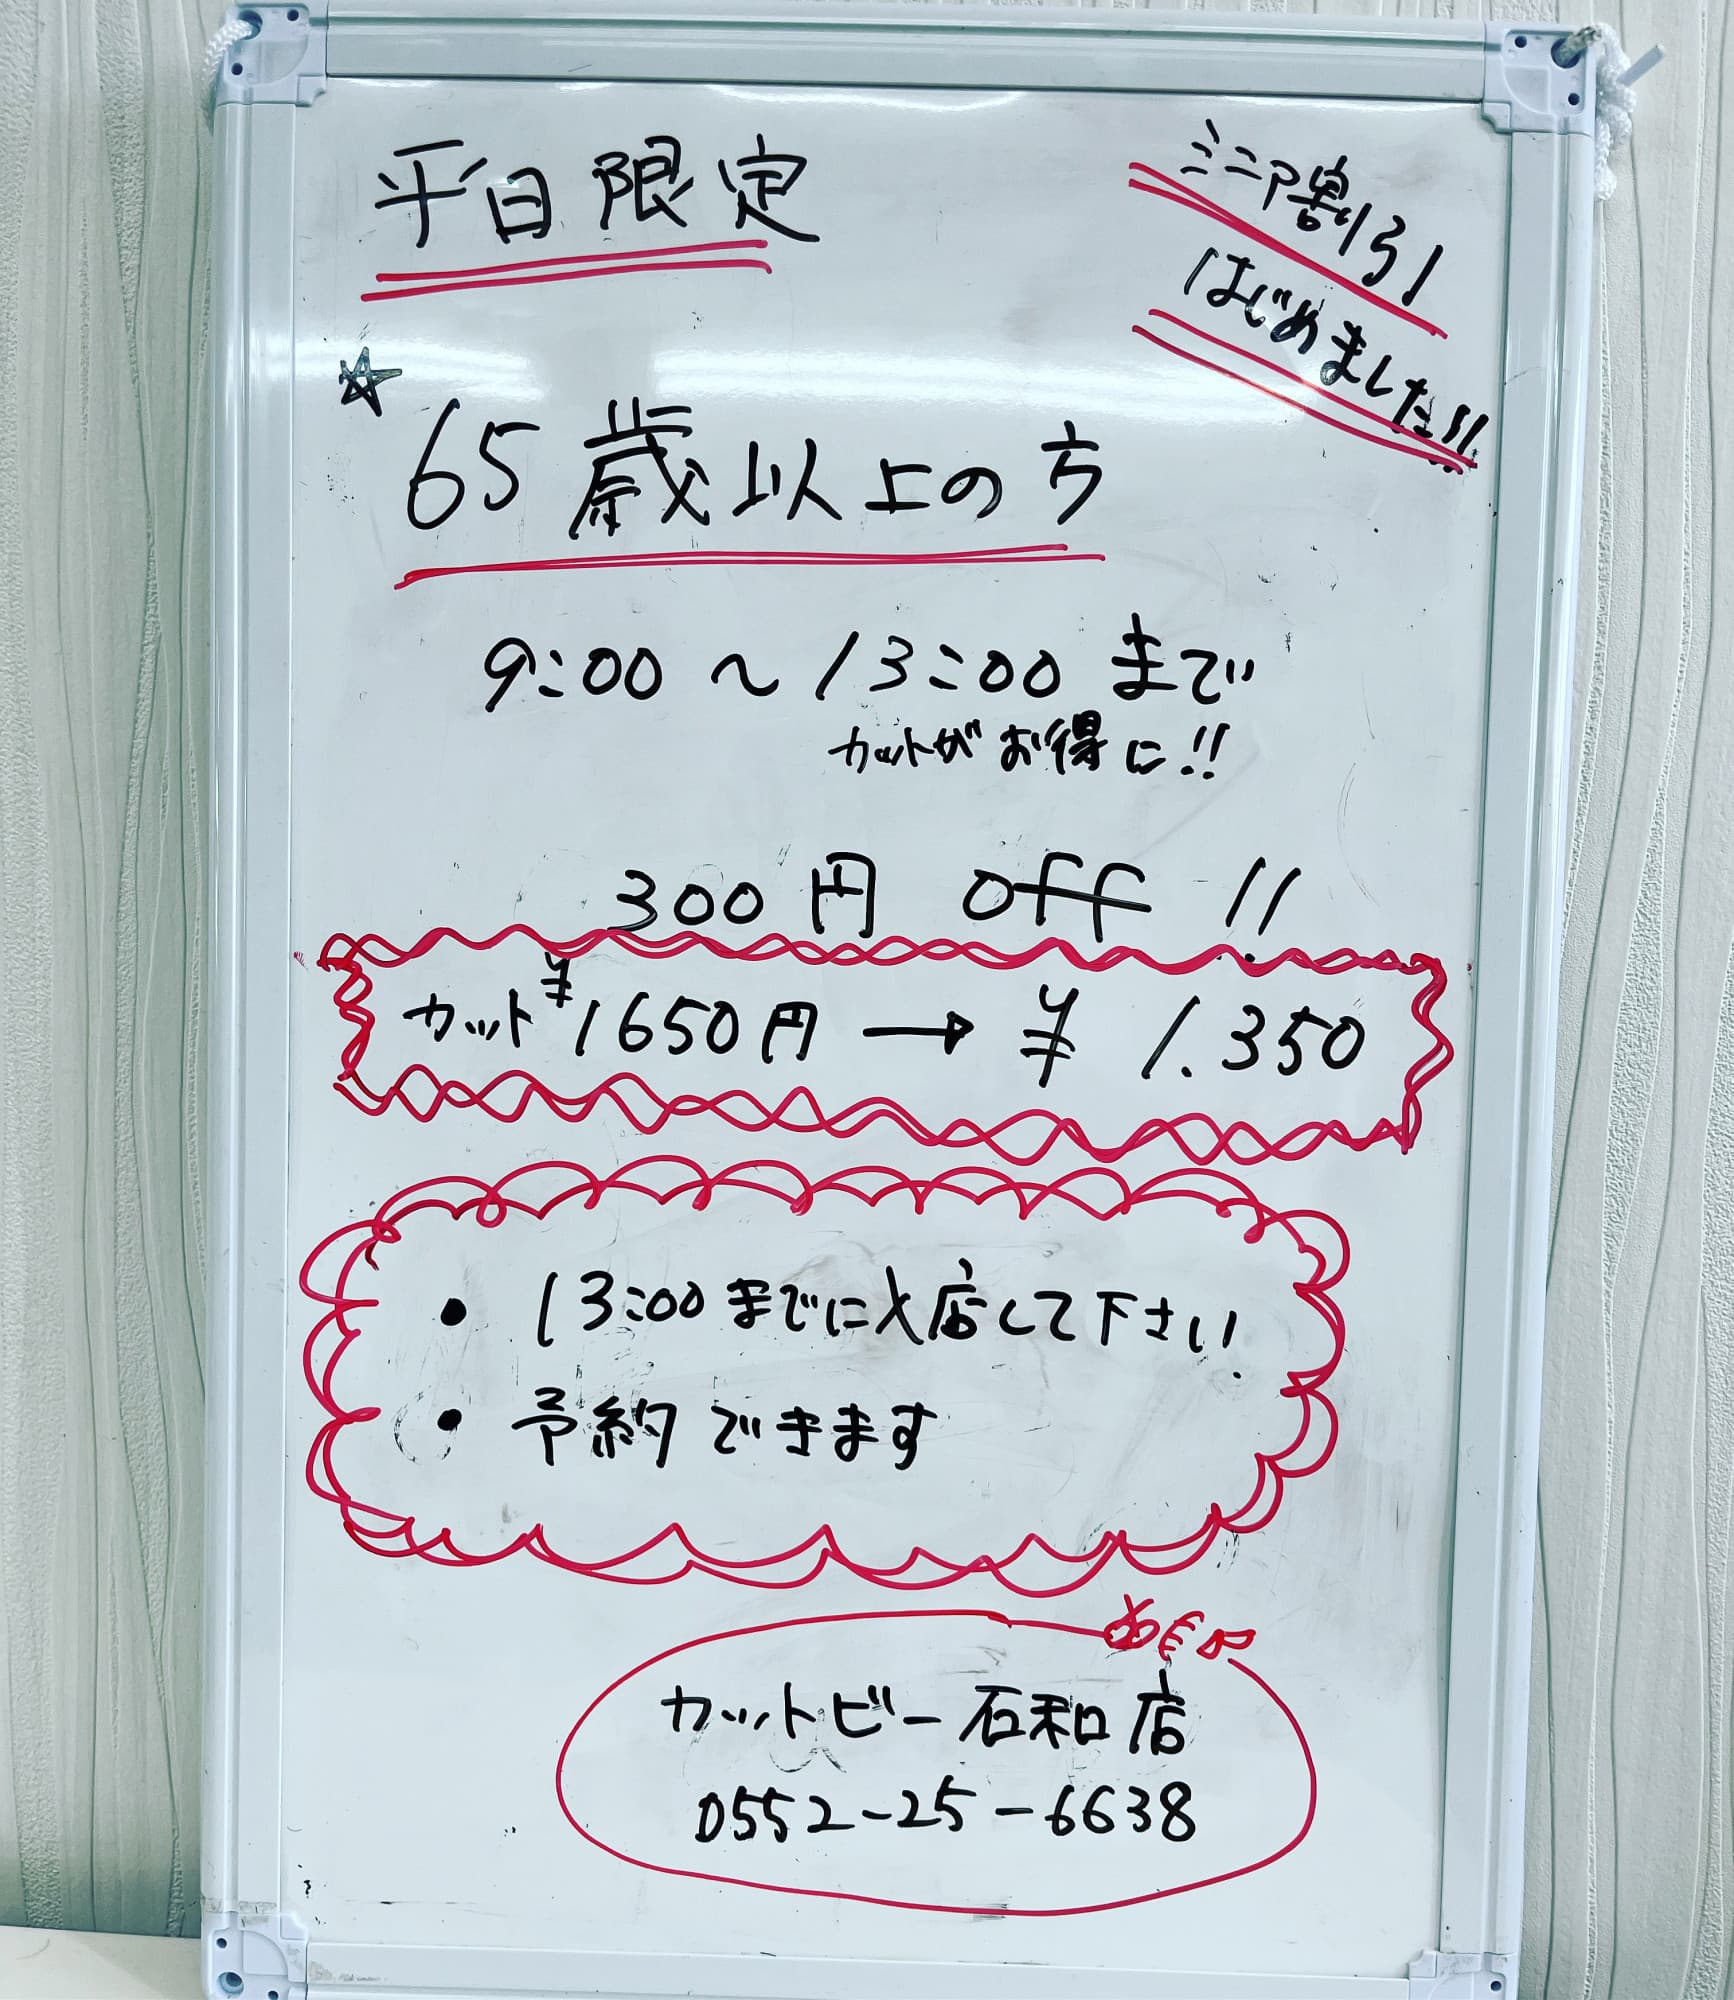 平日限定
シニア割引
はじめました!!
☆
65歳以上の方
9:00～13:00まで
カットがお得に!!
300円 off !!
カット ¥1650円 → ¥ 1.350
・13:00までに入店して下さい!
・予約できます
カットビー石和店
0552-25-6638